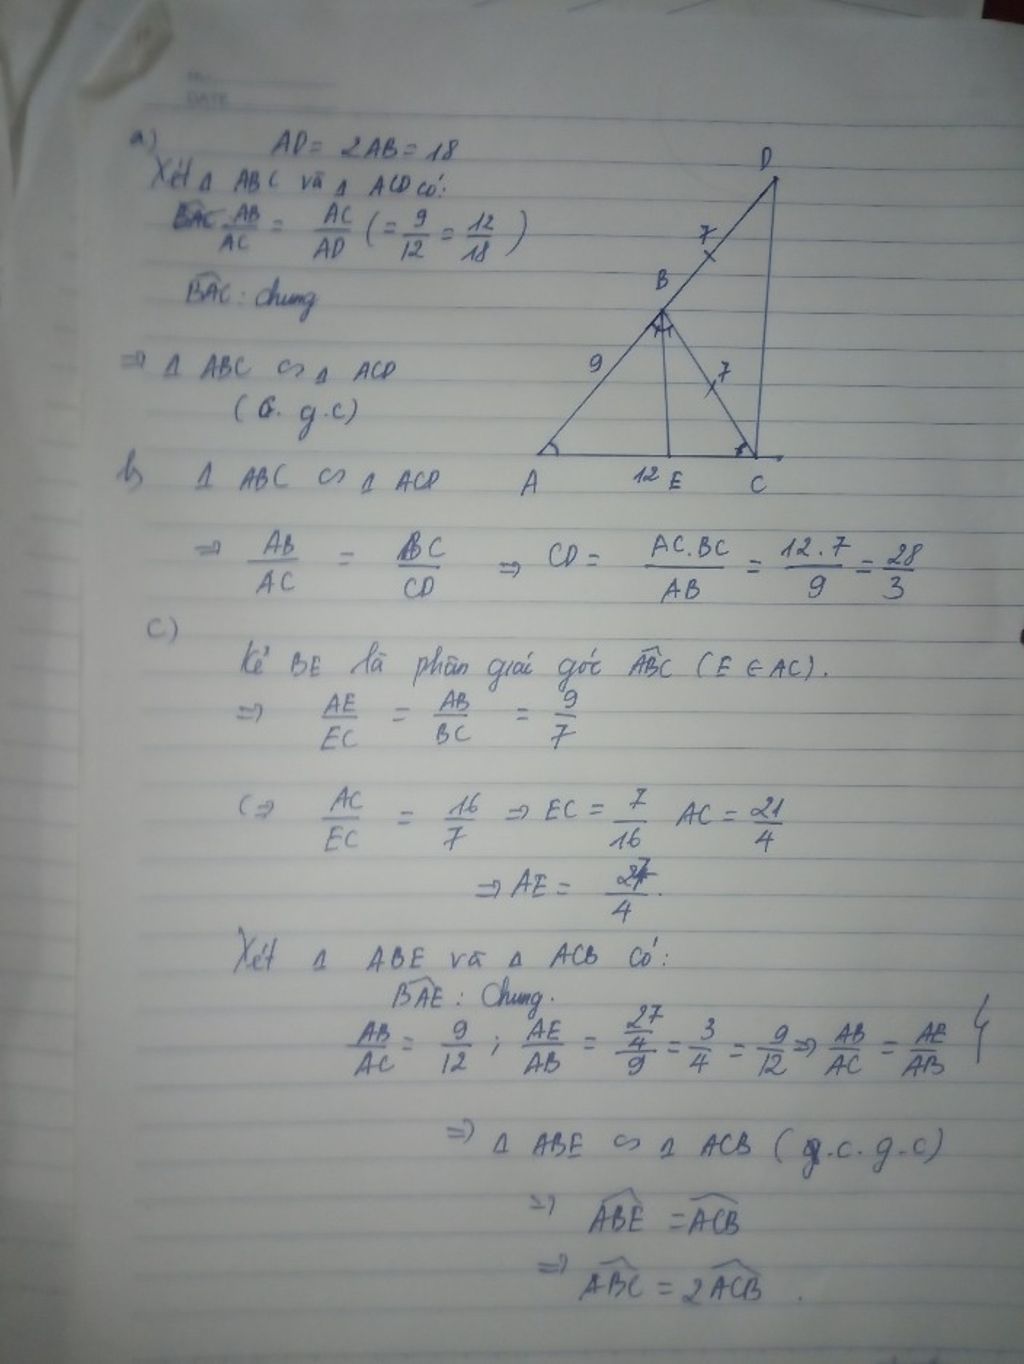 DATE
a) AD = 2AB = 18
Xét Δ ABC và Δ ACD có:
AB/AC = AC/AD (= 9/12 = 12/18)
BAC: chung
⇒ Δ ABC ∽ Δ ACD
(c.g.c)
D
7
B
9
7
A
12 E
C
b) Δ ABC ∽ Δ ACD
⇒ AB/AC = BC/CD ⇒ CD = AC.BC/AB = 12.7/9 = 28/3
c)
Kẻ BE là phân giác góc ABC (E ∈ AC).
⇒ AE/EC = AB/BC = 9/7
(⇒ AC/EC = 16/7 ⇒ EC = 7/16 AC = 21/4
⇒ AE = 27/4.
Xét Δ ABE và Δ ACB có:
BAE: Chung.
AB/AC = 9/12 ; AE/AB = 27/4/9 = 3/4 = 9/12 ⇒ AB/AC = AE/AB }
⇒ Δ ABE ∽ Δ ACB (c.g.c)
⇒ ABE = ACB
⇒ ABC = 2ACB.